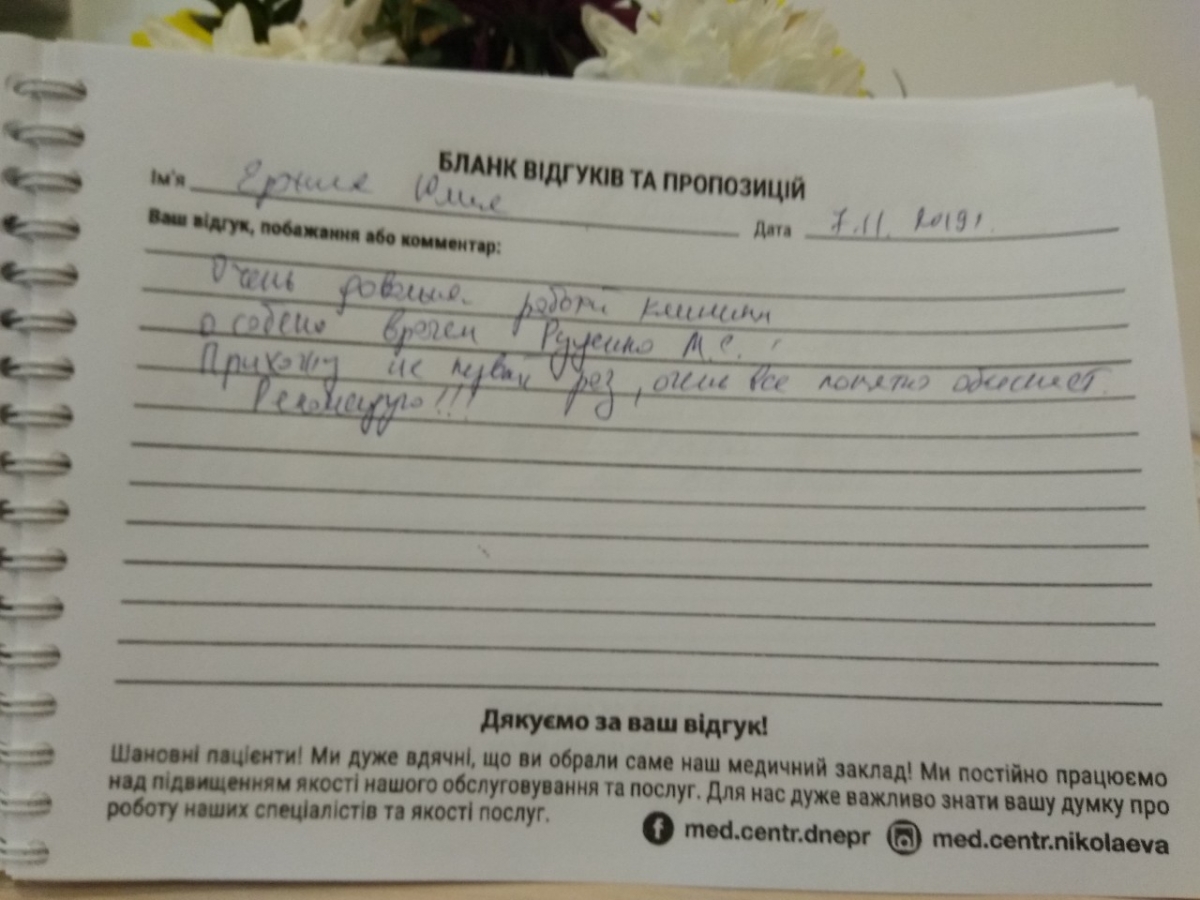 БЛАНК ВІДГУКІВ ТА ПРОПОЗИЦІЙ
Ім'я Юлия Дата 7.11. 2019г.
Ваш відгук, побажання або комментар:
Очень довольна работой клиники
особено врачем М.С. !
Прихожу не первый раз, очень все понятно объясняет.
Рекомендую!!!
Дякуємо за ваш відгук!
Шановні пацієнти! Ми дуже вдячні, що ви обрали саме наш медичний заклад! Ми постійно працюємо
над підвищенням якості нашого обслуговування та послуг. Для нас дуже важливо знати вашу думку про
роботу наших спеціалістів та якості послуг.
med.centr.dnepr med.centr.nikolaeva